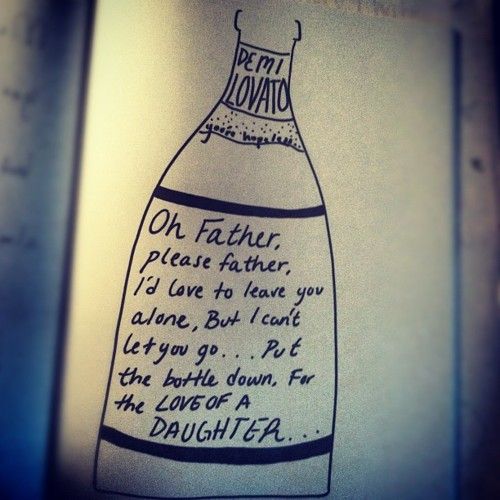 DEMI
LOVATO
you're hopeless...
Oh Father,
please father,
I'd love to leave you
alone, But I can't
let you go... Put
the bottle down, For
the LOVE OF A
DAUGHTER...